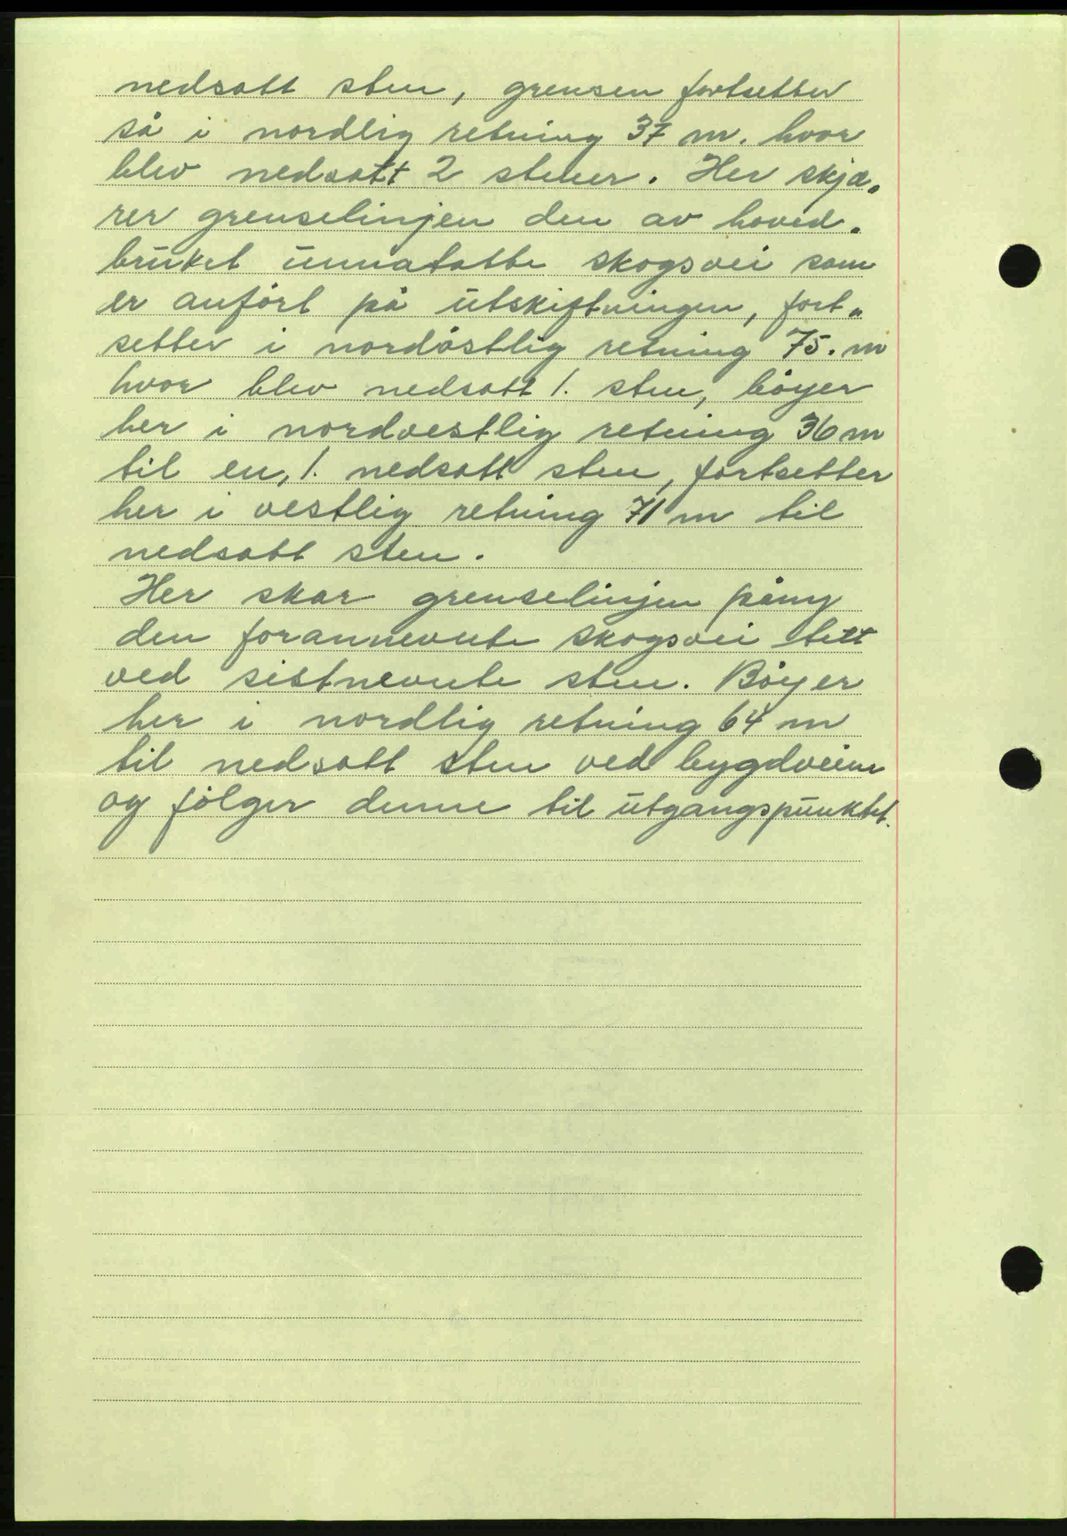 nedsatt sten, grensen fortsetter
så i nordlig retning 37 m. hvor
blev nedsatt 2 stener. Her skjæ„
rer grenselinjen den av hoved„
bruket unnatatte skogsvei som
er anført på utskiftningen, fort„
setter i nordöstlig retning 75. m
hvor blev nedsatt 1. sten, böyer
her i nordvestlig retning 36 m
til en, 1. nedsatt sten, fortsetter
her i vestlig retning 71 m til
nedsatt sten.
Her skar grenselinjen påny
den forannevnte skogsvei tett
ved sistnevnte sten. Böyer
her i nordlig retning 64 m
til nedsatt sten ved bygdveien
og fölger denne til utgangspunktet.